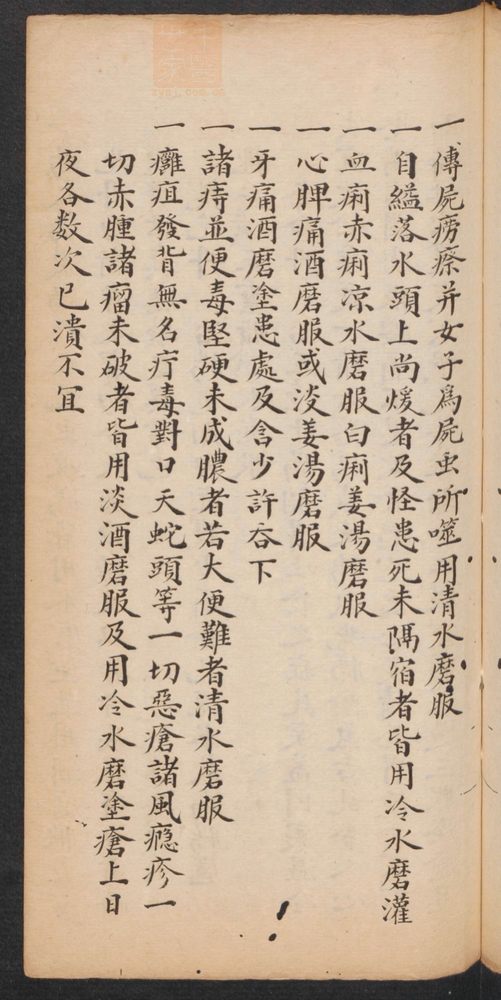 一傳屍癆瘵并女子爲屍虫所噬用清水磨服
一自縊落水頭上尚煖者及怪患死未隔宿者皆用冷水磨灌
一血痢赤痢凉水磨服白痢姜湯磨服
一心脾痛酒磨服或淡姜湯磨服
一牙痛酒磨塗患處及含少許吞下
一諸痔並便毒堅硬未成膿者若大便難者清水磨服
一癰疽發背無名疔毒對口天蛇頭等一切惡瘡諸風癮疹一
切赤腫諸瘤未破者皆用淡酒磨服及用冷水磨塗瘡上日
夜各数次已潰不宜